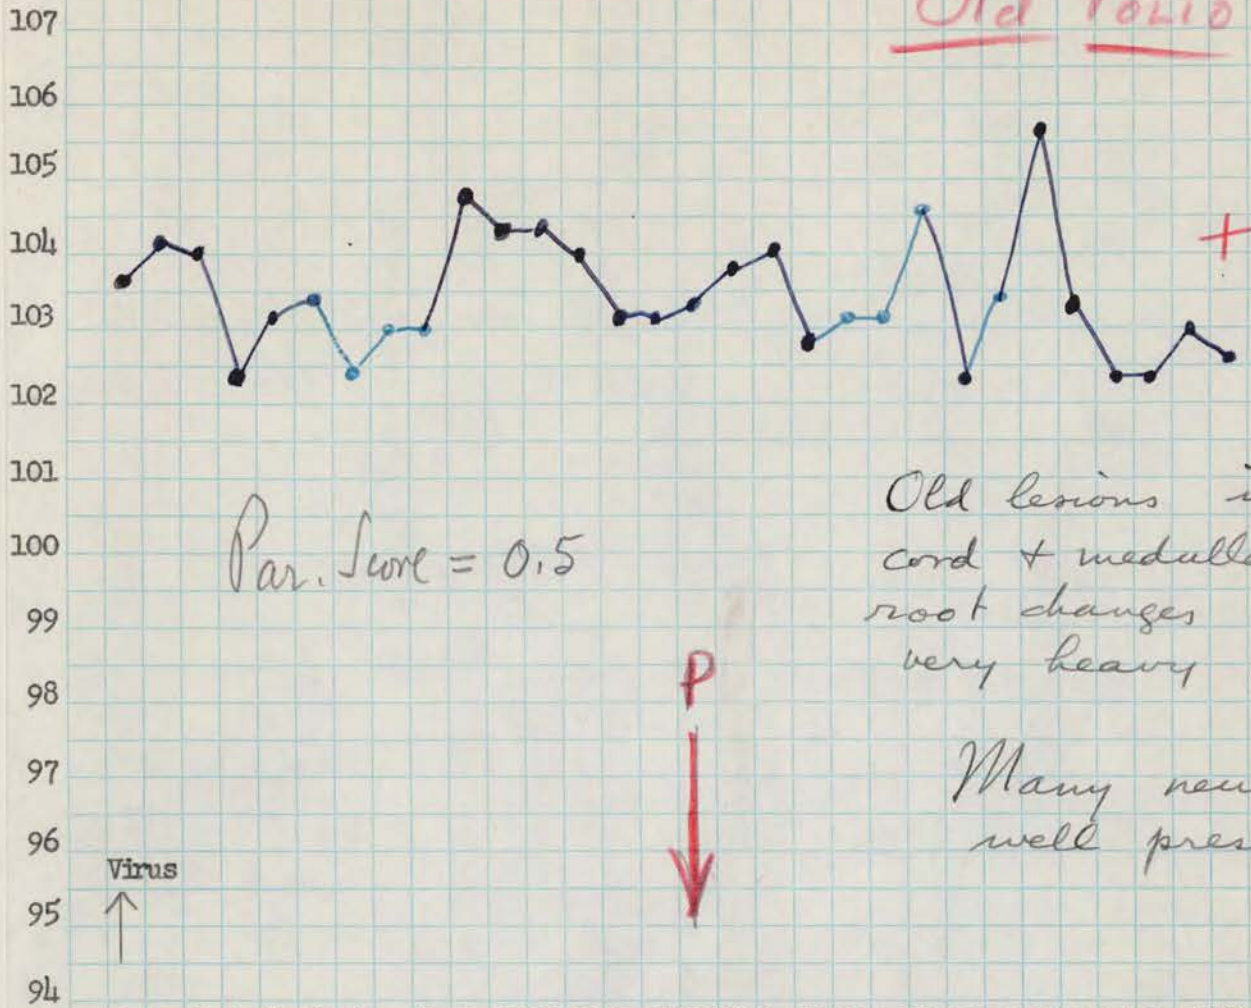 Old Polio
107
106
105
104
103
102
101
100
99
98
97
96
95
94
+
Par. Score = 0.5
Old lesions i
cord + medulla
root changes
very heavy
P
Many neu
well pres
Virus